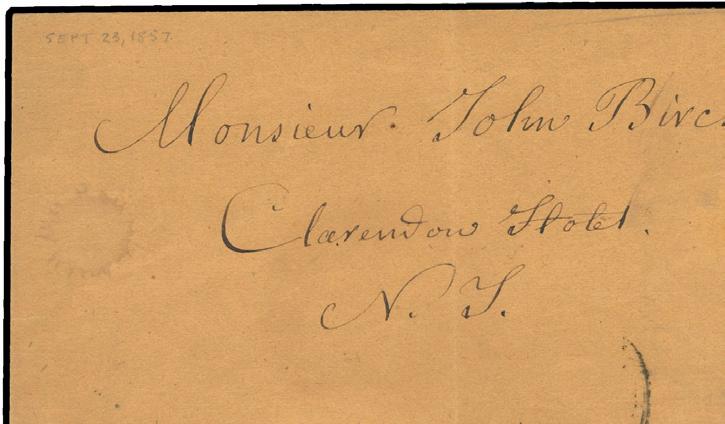 SEPT 23, 1857
Monsieur John Birc
Clarendon Hotel.
N. Y.